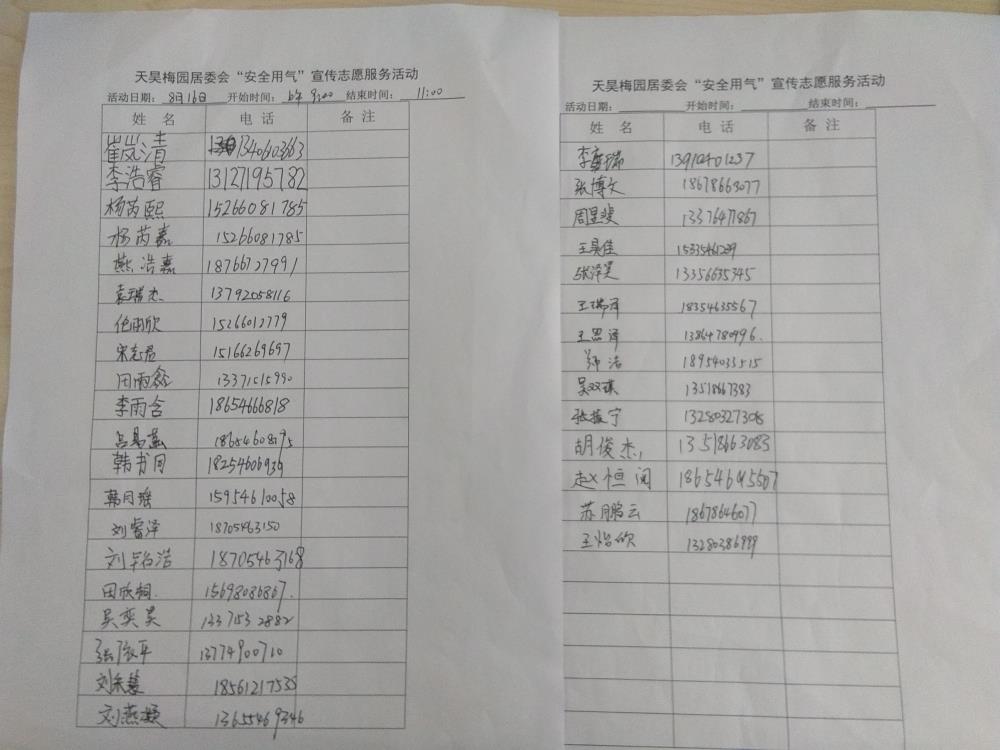 天昊梅园居委会“安全用气”宣传志愿服务活动
活动日期： 8月16日 开始时间： 9:00 结束时间： 11:00
姓 名 电 话 备 注
崔岚清 1340603663
李浩睿 13127195782
杨芮熙 15266081785
杨芮嘉 15266081785
燕浩嘉 18766127991
袁瑞杰 13792058116
伦雨欣 15266012779
宋志君 15166269697
田雨鑫 13371515990
李雨含 18654666818
吕易燕
韩书同 18254606939
韩同瑶 15954610058
刘睿泽 18705463150
浩 18705463168
田欣桐 15698086867
吴奕昊 13371532882
张 平 13774900710
刘 慧 18561217535
刘燕凝 13655469346
天昊梅园居委会“安全用气”宣传志愿服务活动
活动日期： 开始时间： 结束时间：
姓 名 电 话 备 注
李 瑞 13910401237
张博文 18678663077
周昱斐 13376477867
王昊佳
张泽昊 13356635345
王瑞泽 18354635567
王思泽 13864780996
郑洁 18954033515
吴双琪 13518667383
张振宁 13280327308
胡俊杰 13518663083
赵恒阅
苏鹏云 18678646077
王怡欣 13280386999